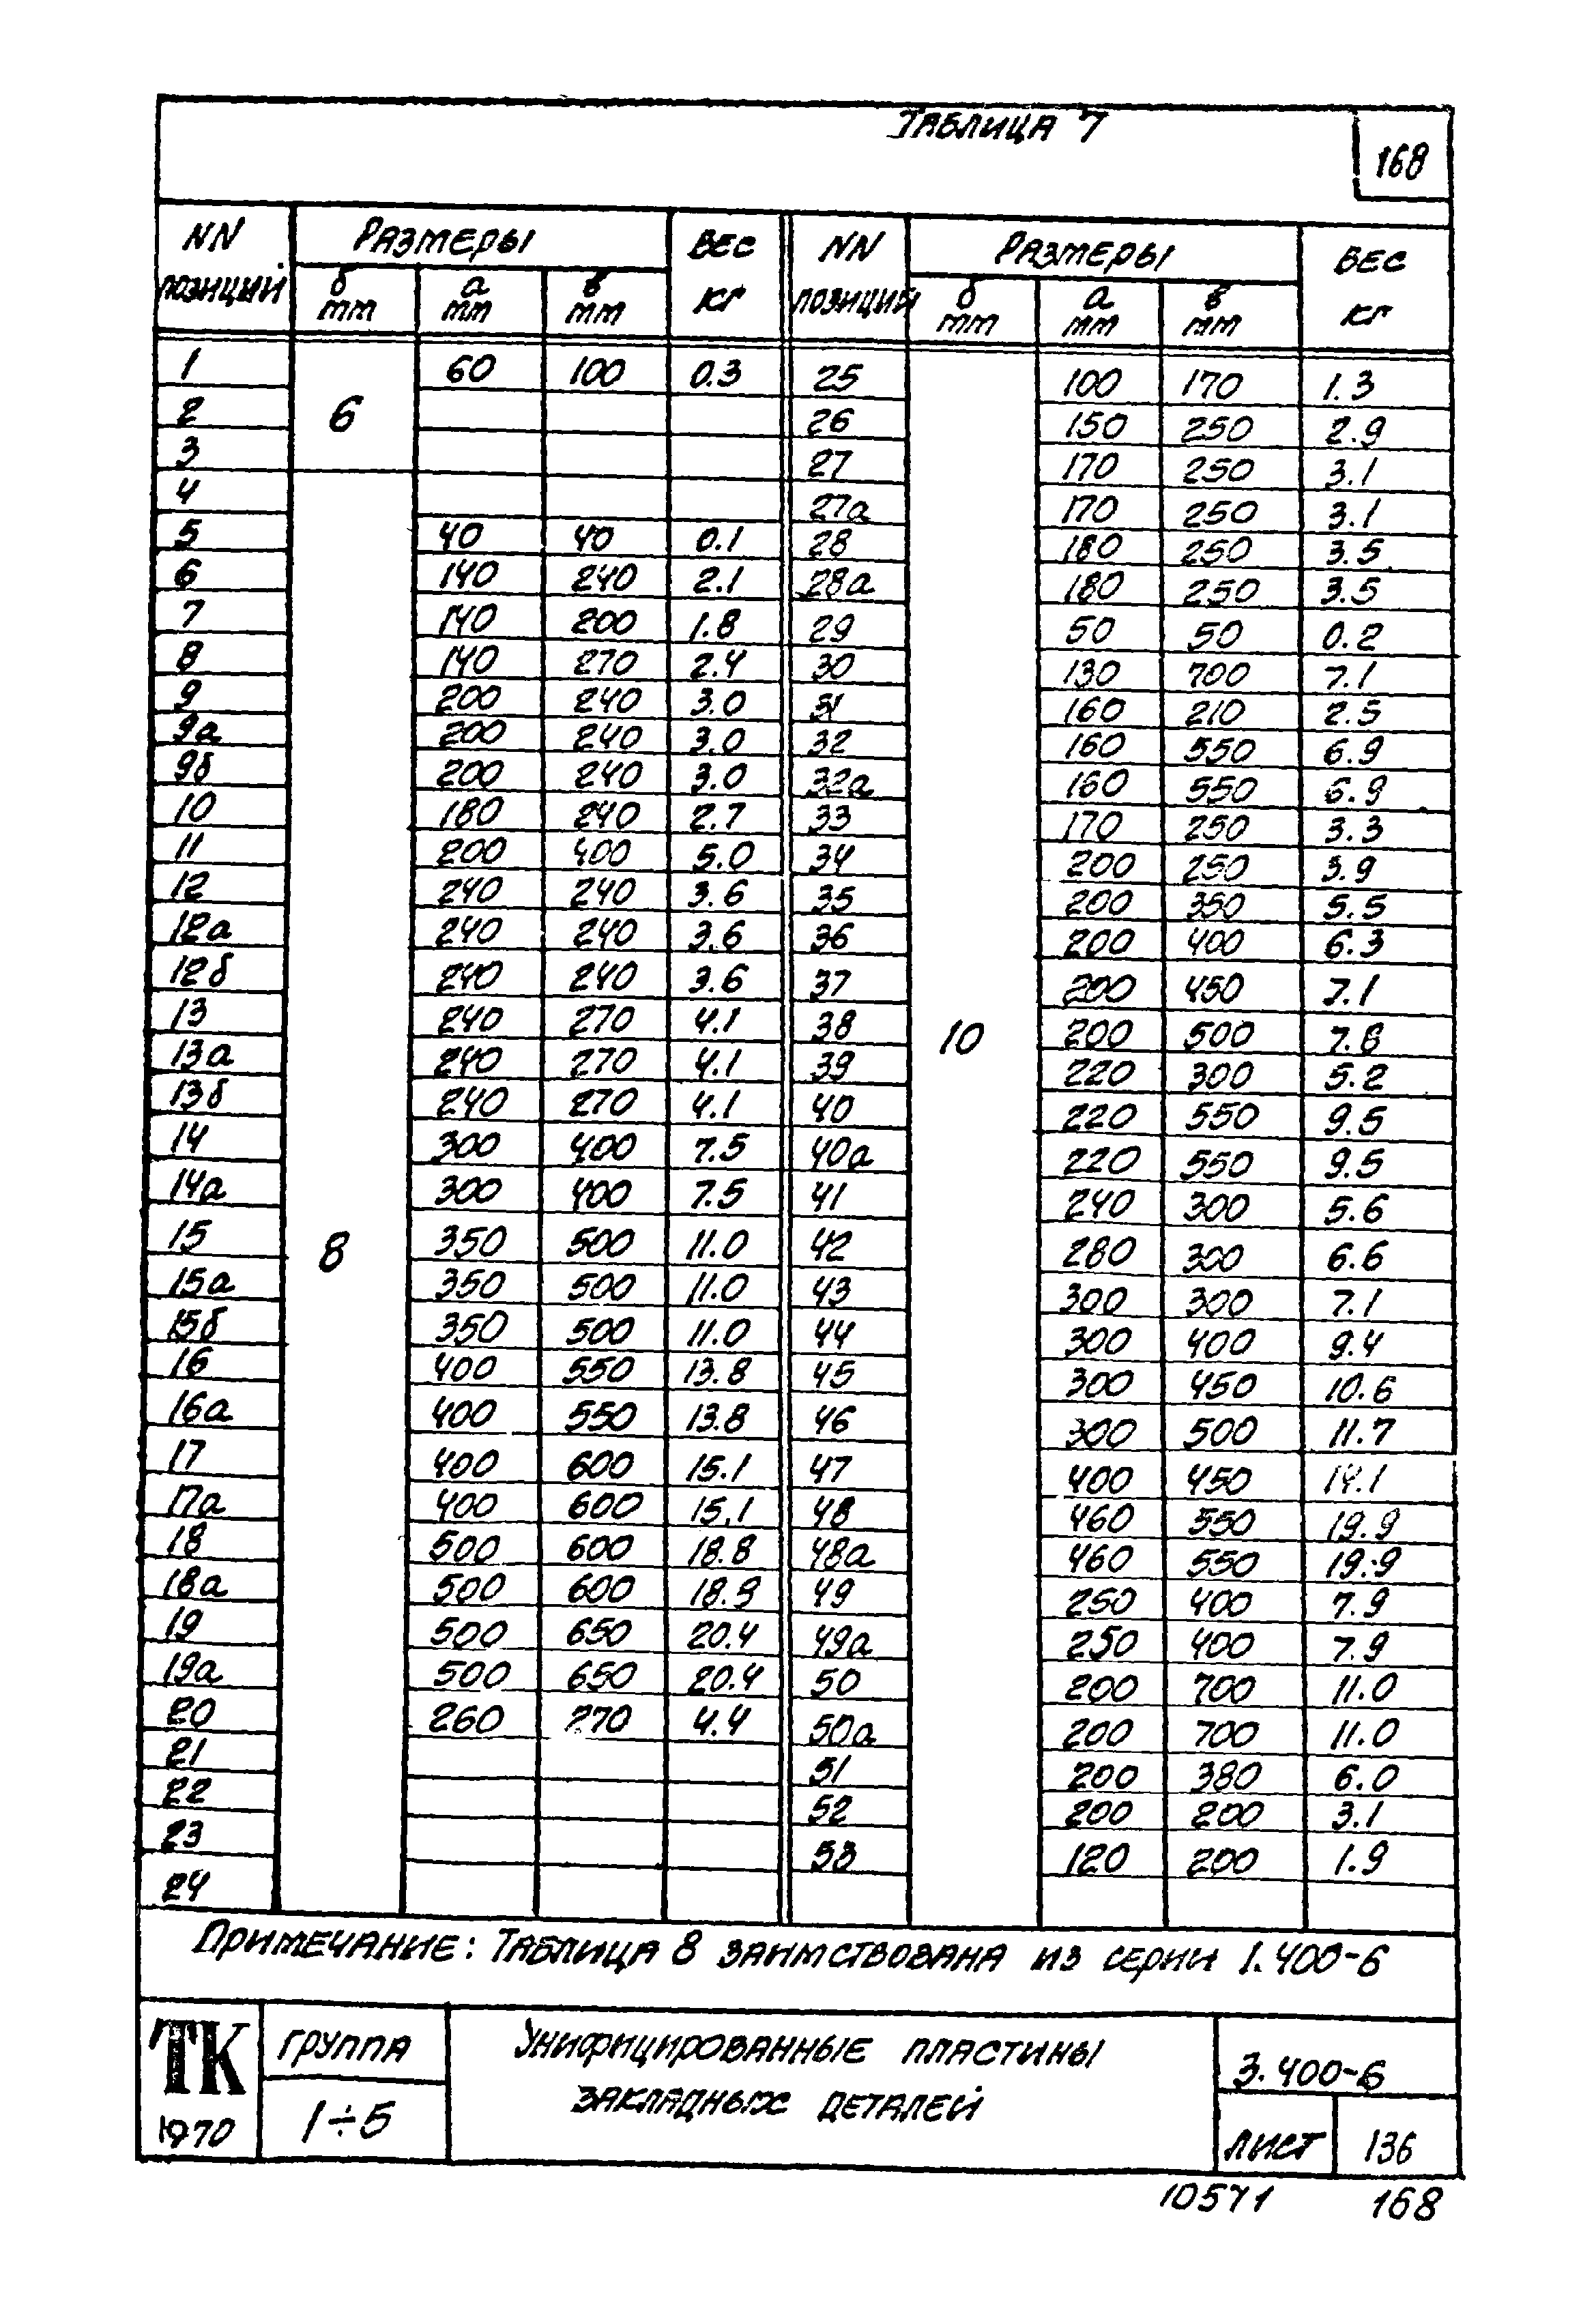 ТАБЛИЦА 7
168
NN позиций | Размеры | ВЕС кг | NN позиций | Размеры | ВЕС кг
б мм | а мм | в мм | б мм | а мм | в мм
1 | 6 | 60 | 100 | 0.3 | 25 | 10 | 100 | 170 | 1.3
2 | 26 | 150 | 250 | 2.9
3 | 27 | 170 | 250 | 3.1
4 | 8 | 27а | 170 | 250 | 3.1
5 | 40 | 40 | 0.1 | 28 | 180 | 250 | 3.5
6 | 140 | 240 | 2.1 | 28а | 180 | 250 | 3.5
7 | 140 | 200 | 1.8 | 29 | 50 | 50 | 0.2
8 | 140 | 270 | 2.4 | 30 | 130 | 700 | 7.1
9 | 200 | 240 | 3.0 | 31 | 160 | 210 | 2.5
9а | 200 | 240 | 3.0 | 32 | 160 | 550 | 6.9
9б | 200 | 240 | 3.0 | 32а | 160 | 550 | 6.9
10 | 180 | 240 | 2.7 | 33 | 170 | 250 | 3.3
11 | 200 | 400 | 5.0 | 34 | 200 | 250 | 3.9
12 | 240 | 240 | 3.6 | 35 | 200 | 350 | 5.5
12а | 240 | 240 | 3.6 | 36 | 200 | 400 | 6.3
12б | 240 | 240 | 3.6 | 37 | 200 | 450 | 7.1
13 | 240 | 270 | 4.1 | 38 | 200 | 500 | 7.8
13а | 240 | 270 | 4.1 | 39 | 220 | 300 | 5.2
13б | 240 | 270 | 4.1 | 40 | 220 | 550 | 9.5
14 | 300 | 400 | 7.5 | 40а | 220 | 550 | 9.5
14а | 300 | 400 | 7.5 | 41 | 240 | 300 | 5.6
15 | 350 | 500 | 11.0 | 42 | 280 | 300 | 6.6
15а | 350 | 500 | 11.0 | 43 | 300 | 300 | 7.1
15б | 350 | 500 | 11.0 | 44 | 300 | 400 | 9.4
16 | 400 | 550 | 13.8 | 45 | 300 | 450 | 10.6
16а | 400 | 550 | 13.8 | 46 | 300 | 500 | 11.7
17 | 400 | 600 | 15.1 | 47 | 400 | 450 | 14.1
17а | 400 | 600 | 15.1 | 48 | 460 | 550 | 19.9
18 | 500 | 600 | 18.8 | 48а | 460 | 550 | 19.9
18а | 500 | 600 | 18.8 | 49 | 250 | 400 | 7.9
19 | 500 | 650 | 20.4 | 49а | 250 | 400 | 7.9
19а | 500 | 650 | 20.4 | 50 | 200 | 700 | 11.0
20 | 260 | 270 | 4.4 | 50а | 200 | 700 | 11.0
21 | 51 | 200 | 380 | 6.0
22 | 52 | 200 | 200 | 3.1
23 | 53 | 120 | 200 | 1.9
24
Примечание: Таблица 8 заимствована из серии 1.400-6
ТК
1970
ГРУППА
1÷5
Унифицированные пластины
закладных деталей
3.400-6
ЛИСТ
136
10571
168